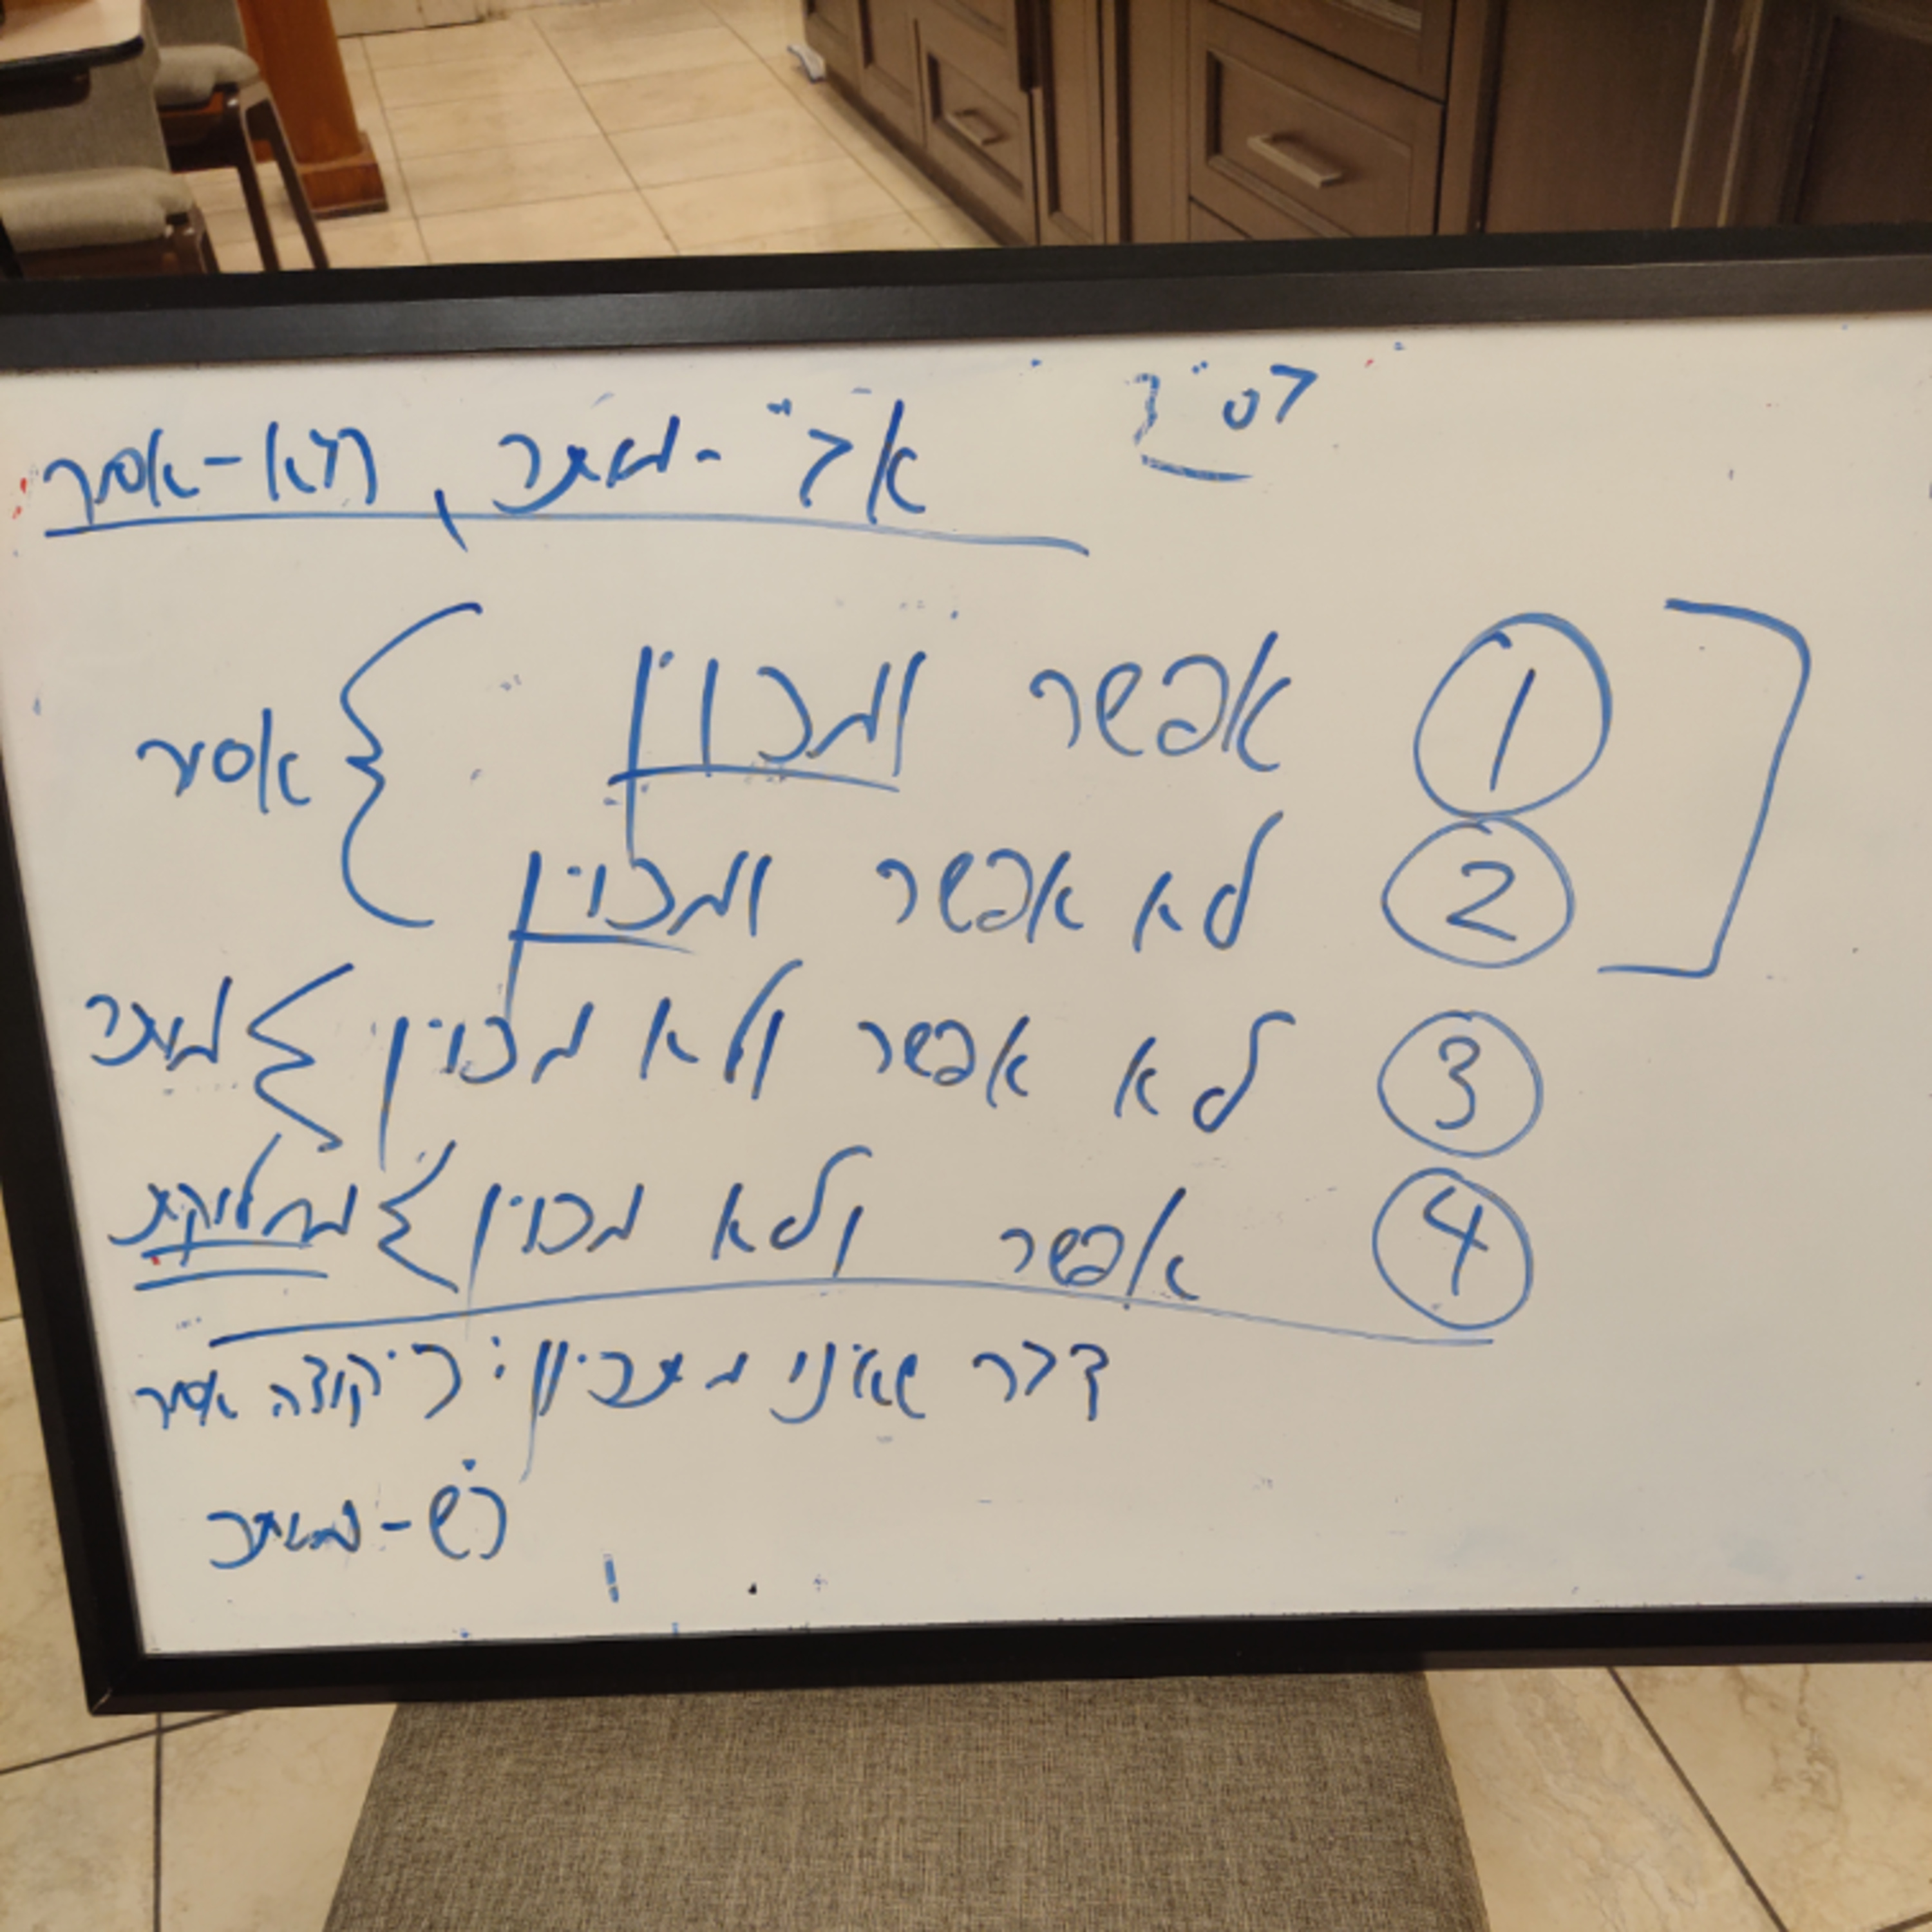 אביי - מותר, רבא - אסור
1 אפשר ומכוין } אסור
2 לא אפשר ומכוין
3 לא אפשר ולא מכוין } מותר
4 אפשר ולא מכוין } מחלוקת
דבר שאינו מתכוין: ר' יהודה אסור
ר'ש - מותר